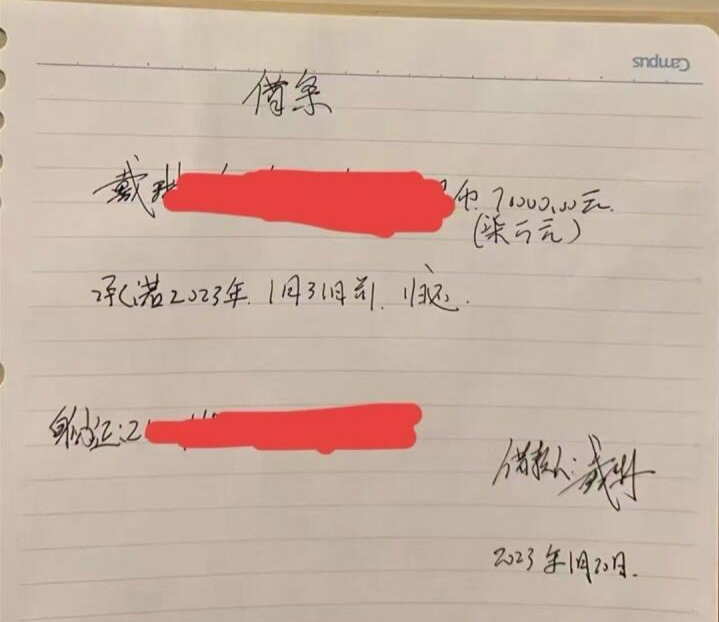 Campus
借条
戴 币 70000.00元.
(柒万元)
承诺2023年 1月31日前 归还.
身份证:2
借款人:戴
2023年1月20日.